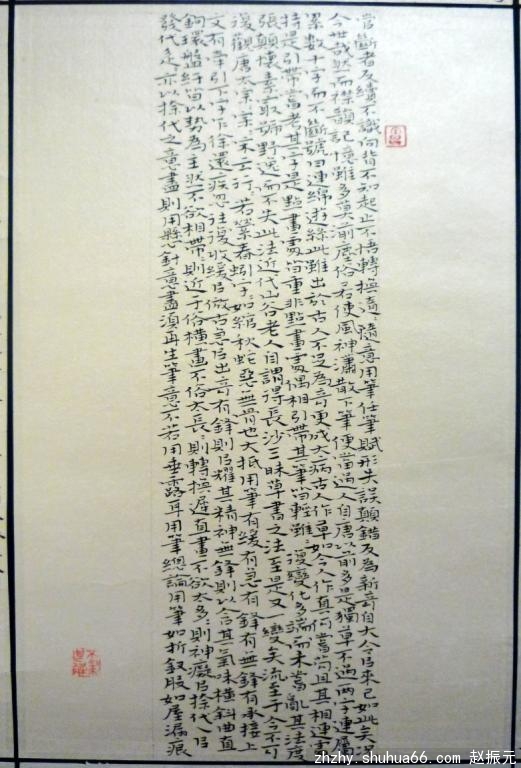 當斷者反續不識向背不知起止不悟轉換隨意用筆任筆賦形失誤顛錯反為新奇自大令以來已如此矣況
今世哉然而襟韻記憶雖多莫湔塵俗若使風神瀟散下筆便當過人自唐以前多是獨草不過兩字連屬
累數十字而不斷號曰連綿遊絲此雖出於古人不足為奇更成大病古人作草如今人作真何嘗苟且其相連處
特是引帶嘗考其字是點畫處皆重非點畫處偶相引帶其筆皆輕雖復變化多端而未嘗亂其法度
張顛懷素最號野逸而不失此法近代山谷老人自謂得長沙三昧草書之法至是又一變矣流至于今不可
復觀唐太宗云行行若縈春蚓字字如綰秋蛇惡無骨也大抵用筆有緩有急有鋒有無鋒有承接上
文有牽引下字乍徐還疾忽往復收緩以倣古急以出奇有鋒則以耀其精神無鋒則以含其氣味橫斜曲直
鉤環盤紆皆以勢為主然不欲相帶則近于俗橫畫不俗太長長則轉換遲直畫不欲太多多則神癡以捺代乀以
發代辵亦以捺代之意盡則用懸針意盡須再生筆意不若用垂露耳用筆總論用筆如折釵股如屋漏痕
zhzhy.shuhua66.com 赵振元